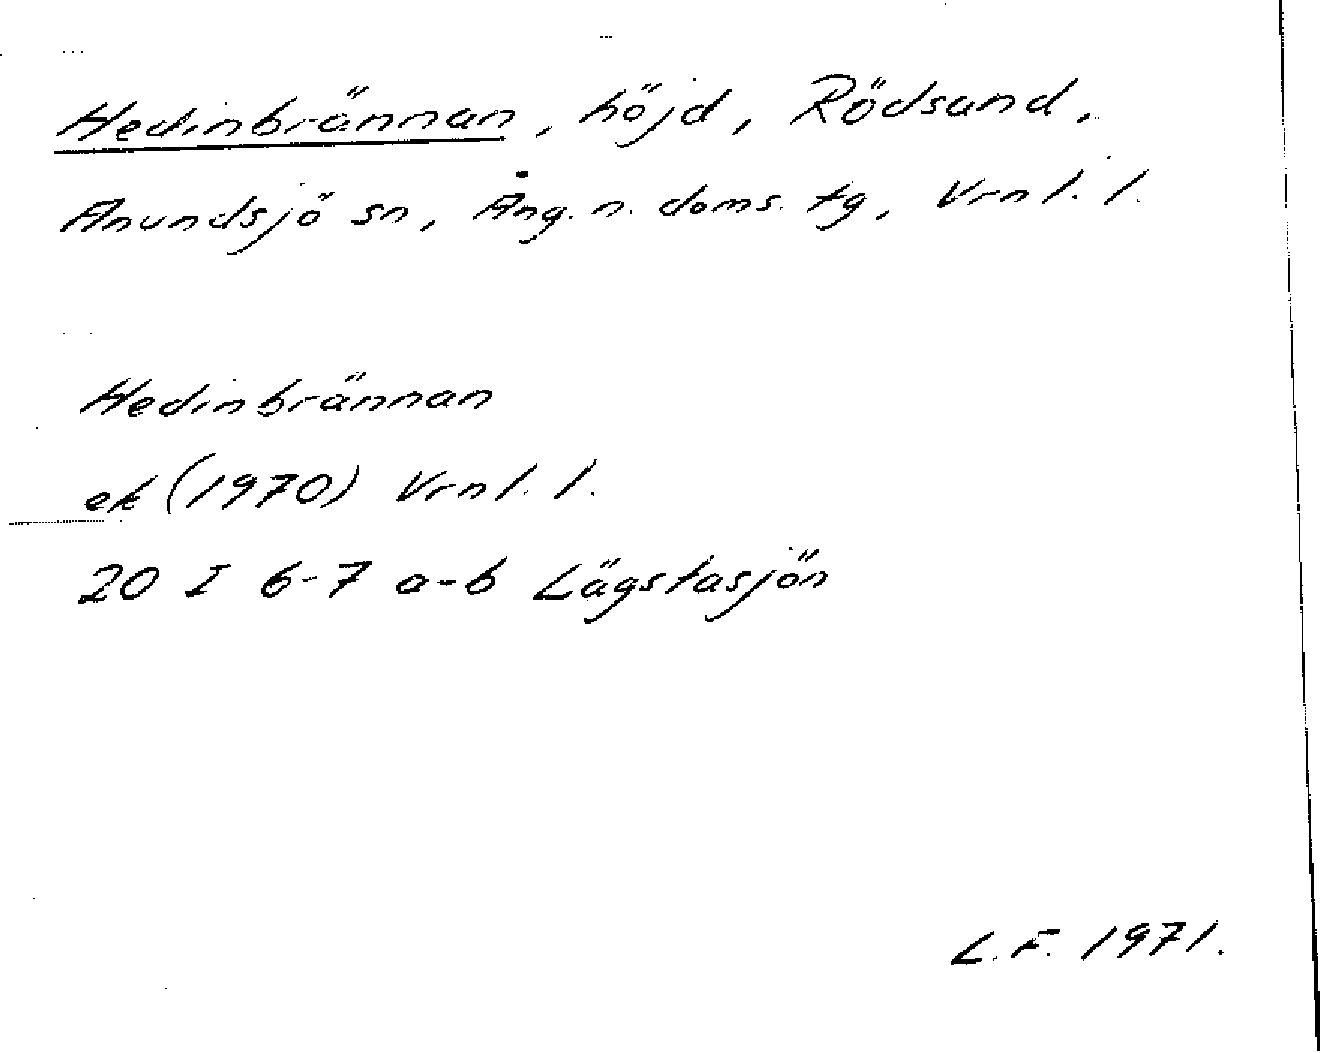 Hedinbrännan, höjd, Rödsand,
Anundsjö sn, Ång. n. doms. tg, Vrnl. l.
Hedinbrännan
ek (1970) Vrnl. l.
20 I 6-7 a-b Lägstasjön
L.F. 1971.